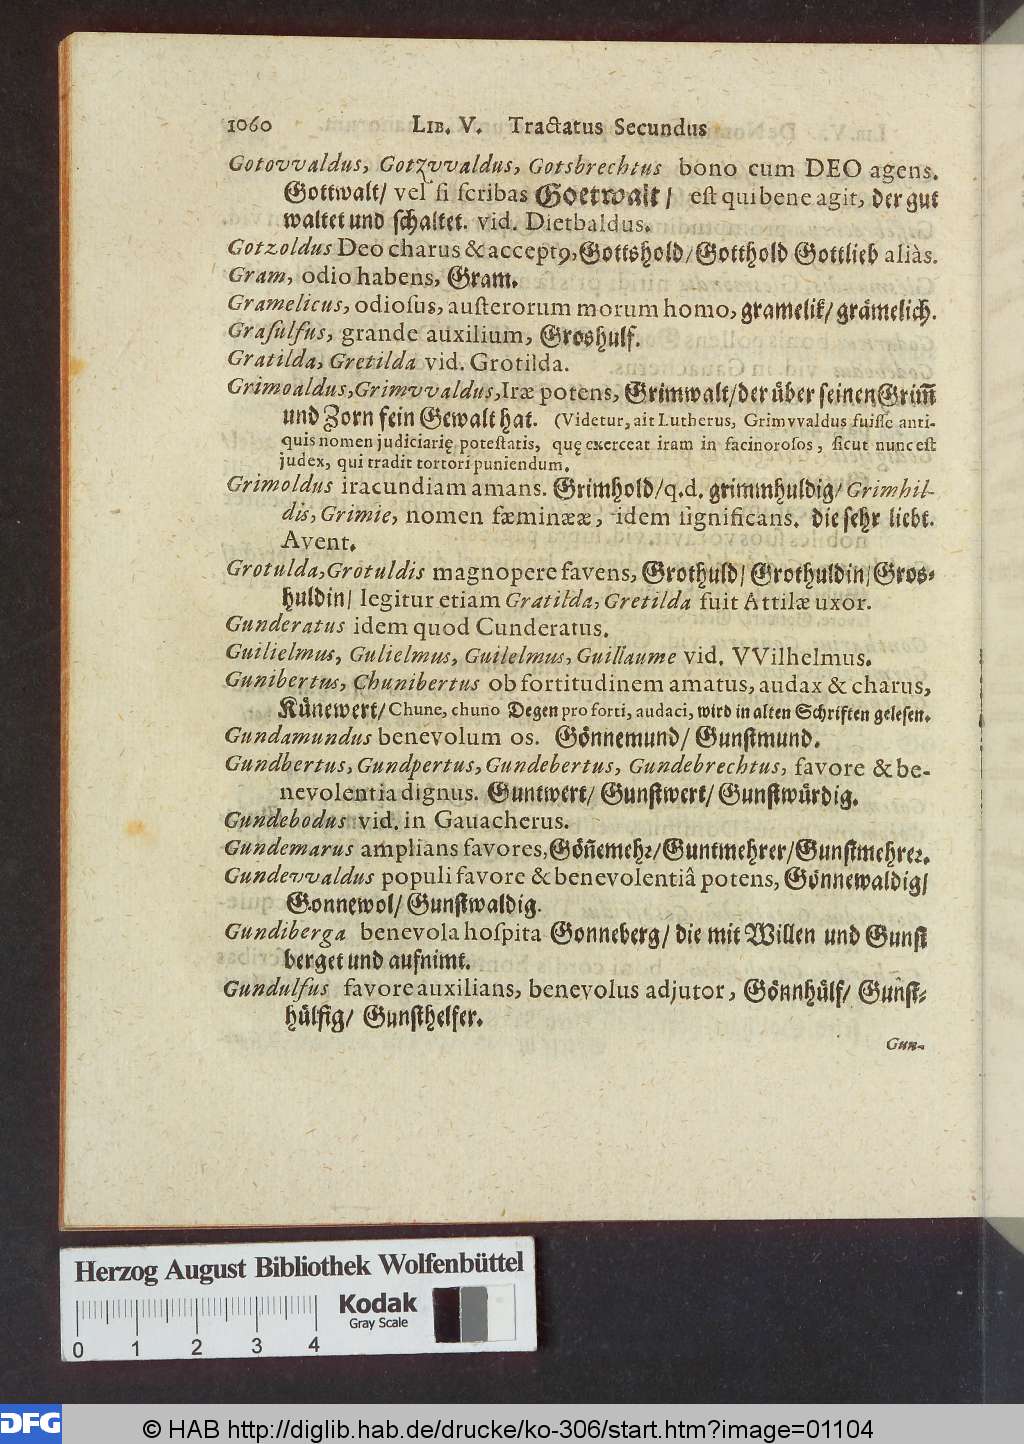 1060 LIB. V. Tractatus Secundus
Gotovvaldus, Gotzvvaldus, Gotsbrechtus bono cum DEO agens.
Gottwalt/ vel ſi ſcribas Goetwalt / eſt qui bene agit, der gut
waltet und ſchaltet. vid. Dietbaldus.
Gotzoldus Deo charus & acceptꝰ, Gottshold/ Gotthold Gottlieb aliàs.
Gram, odio habens, Gram.
Gramelicus, odioſus, auſterorum morum homo, gramelik/ grämelich.
Graſulfus, grande auxilium, Groshulf.
Gratilda, Gretilda vid. Grotilda.
Grimoaldus, Grimvvaldus, Iræ potens, Grimwalt/ der über ſeinen Grim̅
und Zorn ſein Gewalt hat. (Videtur, ait Lutherus, Grimvvaldus fuiſſe anti-
quis nomen judiciarię poteſtatis, quę exerceat iram in facinoroſos, ſicut nunc eſt
judex, qui tradit tortori puniendum.
Grimoldus iracundiam amans. Grimhold/ q.d. grimmhuldig/ Grimhil-
dis, Grimie, nomen fæmineæ, idem ſignificans. die ſehr liebt.
Avent.
Grotulda, Grotuldis magnopere favens, Grothuld/ Grothuldin/ Gros-
huldin/ legitur etiam Gratilda, Gretilda fuit Attilæ uxor.
Gunderatus idem quod Cunderatus.
Guilielmus, Gulielmus, Guilelmus, Guillaume vid. VVilhelmus.
Gunibertus, Chunibertus ob fortitudinem amatus, audax & charus,
Künewert/ Chune, chuno Degen pro forti, audaci, wird in alten Schriften geleſen.
Gundamundus benevolum os. Gönnemund/ Gunſtmund.
Gundbertus, Gundpertus, Gundebertus, Gundebrechtus, favore & be-
nevolentia dignus. Guntwert/ Gunſtwert/ Gunſtwürdig.
Gundebodus vid. in Gauacherus.
Gundemarus amplians favores, Gön̄emehr/ Guntmehrer/ Gunſtmehrer.
Gundevvaldus populi favore & benevolentiâ potens, Gönnewaldig/
Gonnewol/ Gunſtwaldig.
Gundiberga benevola hoſpita Gonneberg/ die mit Willen und Gunſt
berget und aufnimt.
Gundulfus favore auxilians, benevolus adjutor, Gönnhülf/ Gunſt-
hülfig/ Gunſthelfer.
Gun-
Herzog August Bibliothek Wolfenbüttel
Kodak
Gray Scale
0 1 2 3 4
DFG © HAB http://diglib.hab.de/drucke/ko-306/start.htm?image=01104